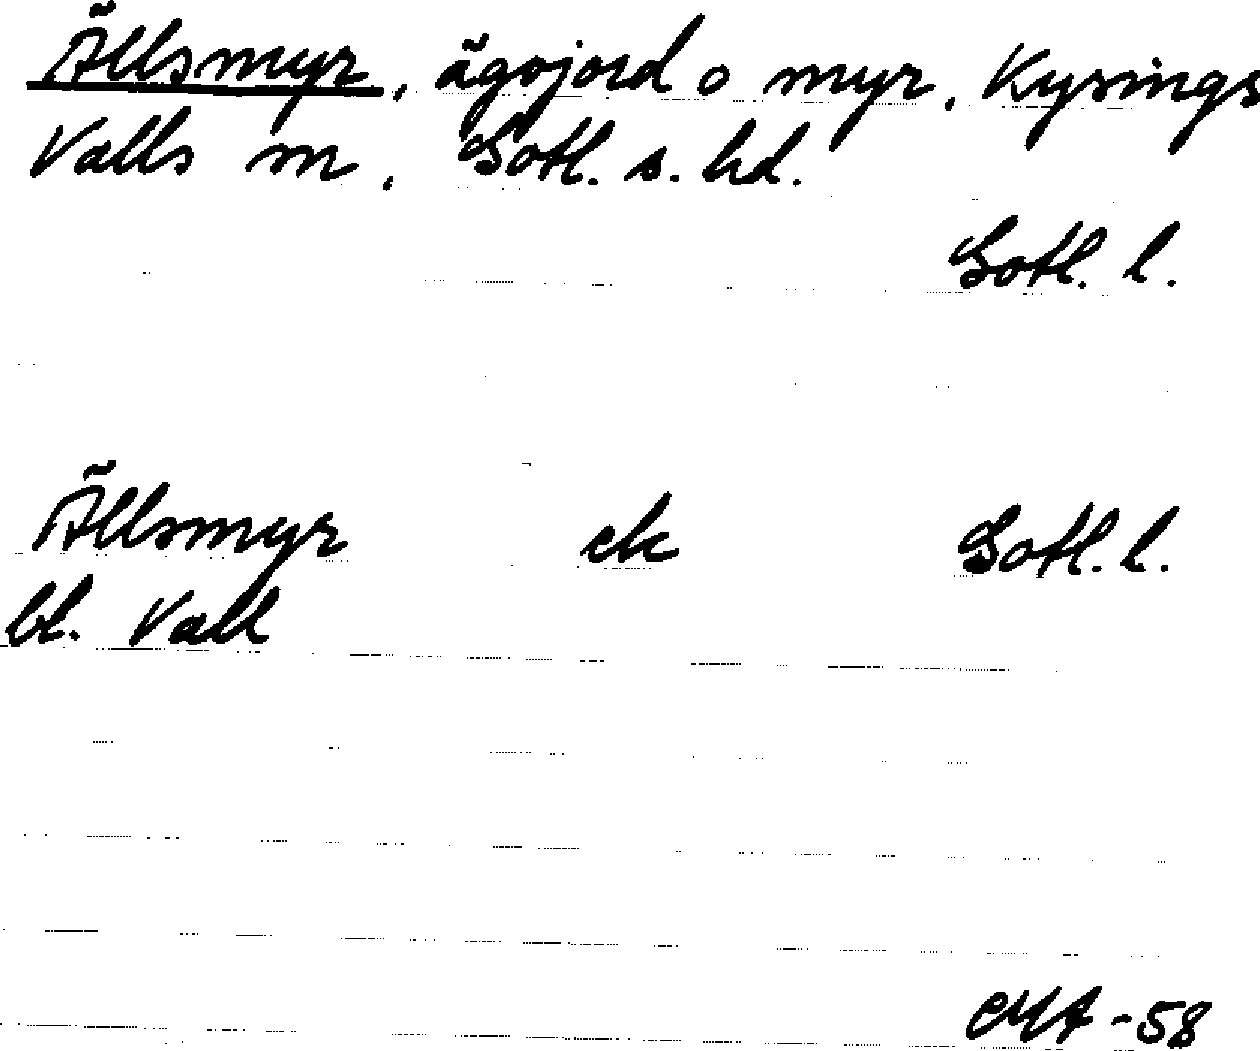 Ällsmyr, ägojord o myr, Kysings
Valls sn, Gotl. s. hd.
Gotl. l.
Ällsmyr ek Gotl. l.
bl. Vall
-58